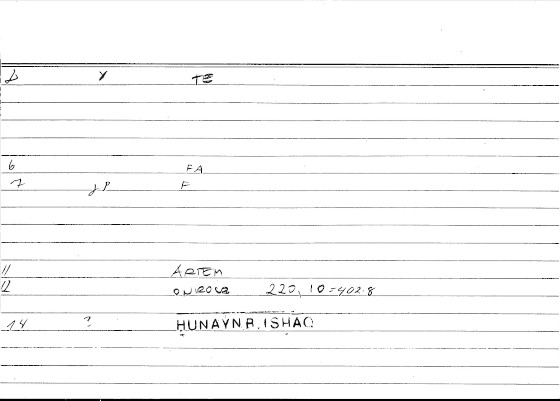 D Y TE
6 FA
7 JP F
11 ARTEM
12 ONIROCR 220, 10=402.8
14 ? ḤUNAYN B. ISḤĀQ